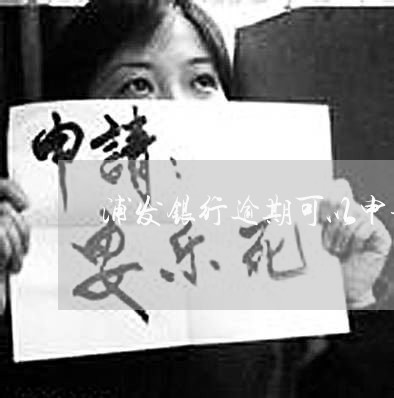 申請：
浦发银行逾期可以申
安乐死